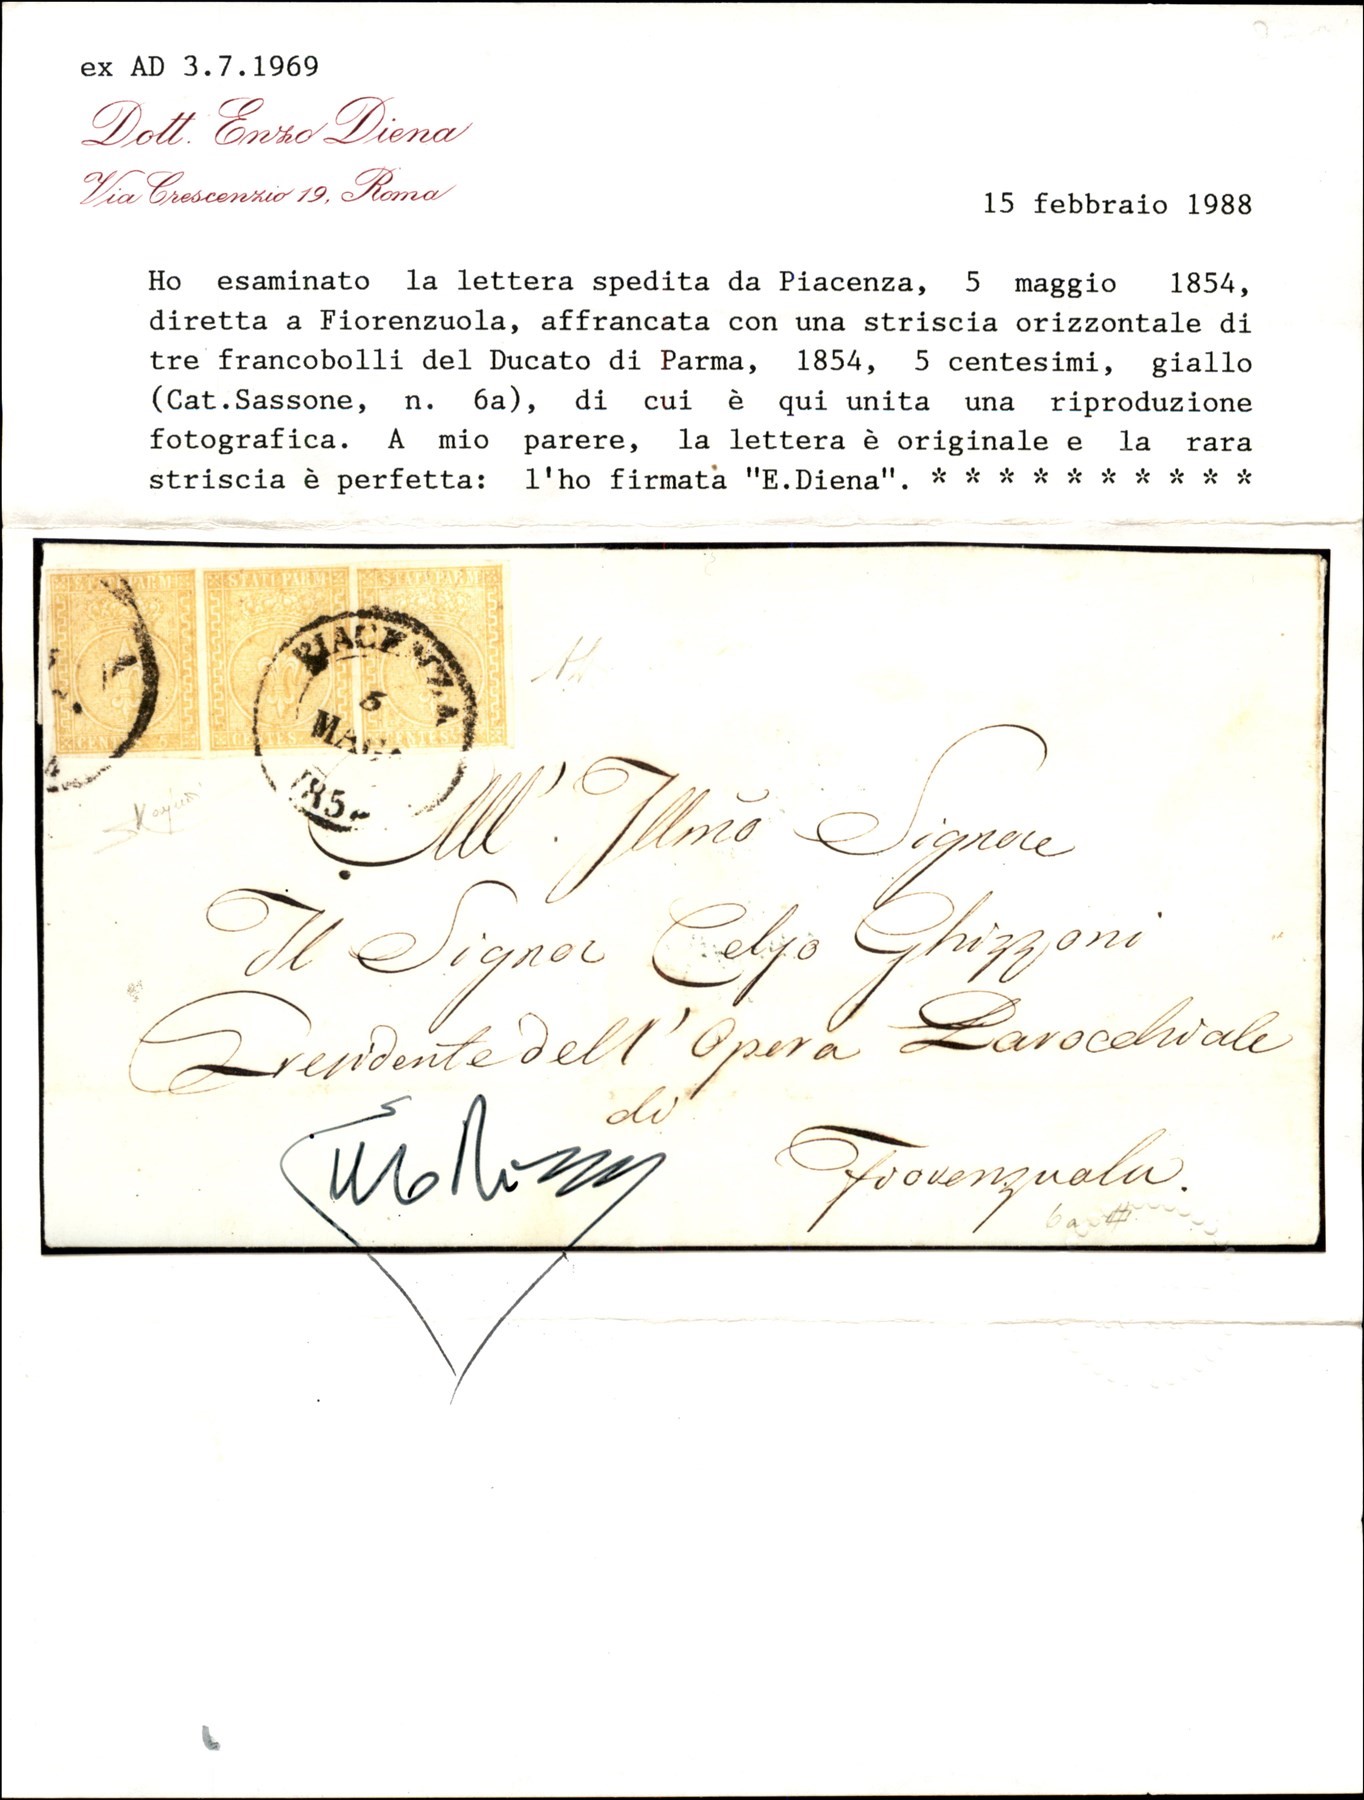 ex AD 3.7.1969
Dott. Enzo Diena
Via Crescenzio 19, Roma
15 febbraio 1988
Ho esaminato la lettera spedita da Piacenza, 5 maggio 1854,
diretta a Fiorenzuola, affrancata con una striscia orizzontale di
tre francobolli del Ducato di Parma, 1854, 5 centesimi, giallo
(Cat.Sassone, n. 6a), di cui è qui unita una riproduzione
fotografica. A mio parere, la lettera è originale e la rara
striscia è perfetta: l'ho firmata "E.Diena". * * * * * * * * * *
STATI PARM STATI PARM
PIACENZA
5
MAGG
185
All'. Illmo Signore
Il Signor Celso Ghizzoni
Presidente dell'Opera Parocchiale
di
Fiorenzuola.
6a